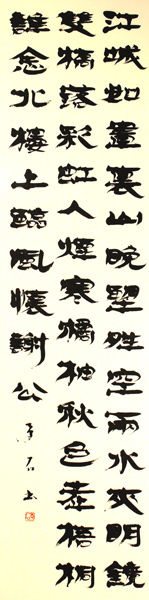 江城如畫裏山晚望晴空兩水夾明鏡
雙橋落彩虹人煙寒橘柚秋色老梧桐
誰念北樓上臨風懷謝公